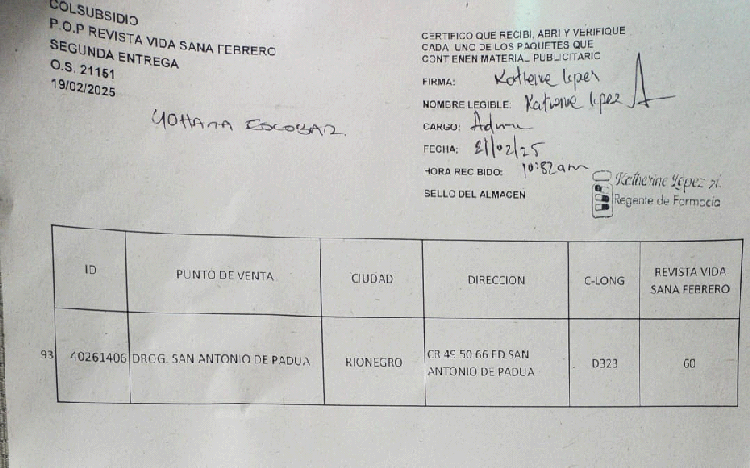 COLSUBSIDIO
P.O.P REVISTA VIDA SANA FEBRERO
SEGUNDA ENTREGA
O.S. 21151
19/02/2025
YOHANA ESCOBAR
CERTIFICO QUE RECIBI, ABRI Y VERIFIQUE
CADA UNO DE LOS PAQUETES QUE
CONTIENEN MATERIAL PUBLICITARIO
FIRMA: Katherine lopez
NOMBRE LEGIBLE: Katherine lopez
CARGO: Admu
FECHA: 21/02/25
HORA RECIBIDO: am
SELLO DEL ALMACEN
Katherine López H.
Regente de Farmacia
ID PUNTO DE VENTA CIUDAD DIRECCION C-LONG REVISTA VIDA SANA FEBRERO
93 40261406 DROG. SAN ANTONIO DE PADUA RIONEGRO CR 49 50 66 ED SAN ANTONIO DE PADUA D323 60